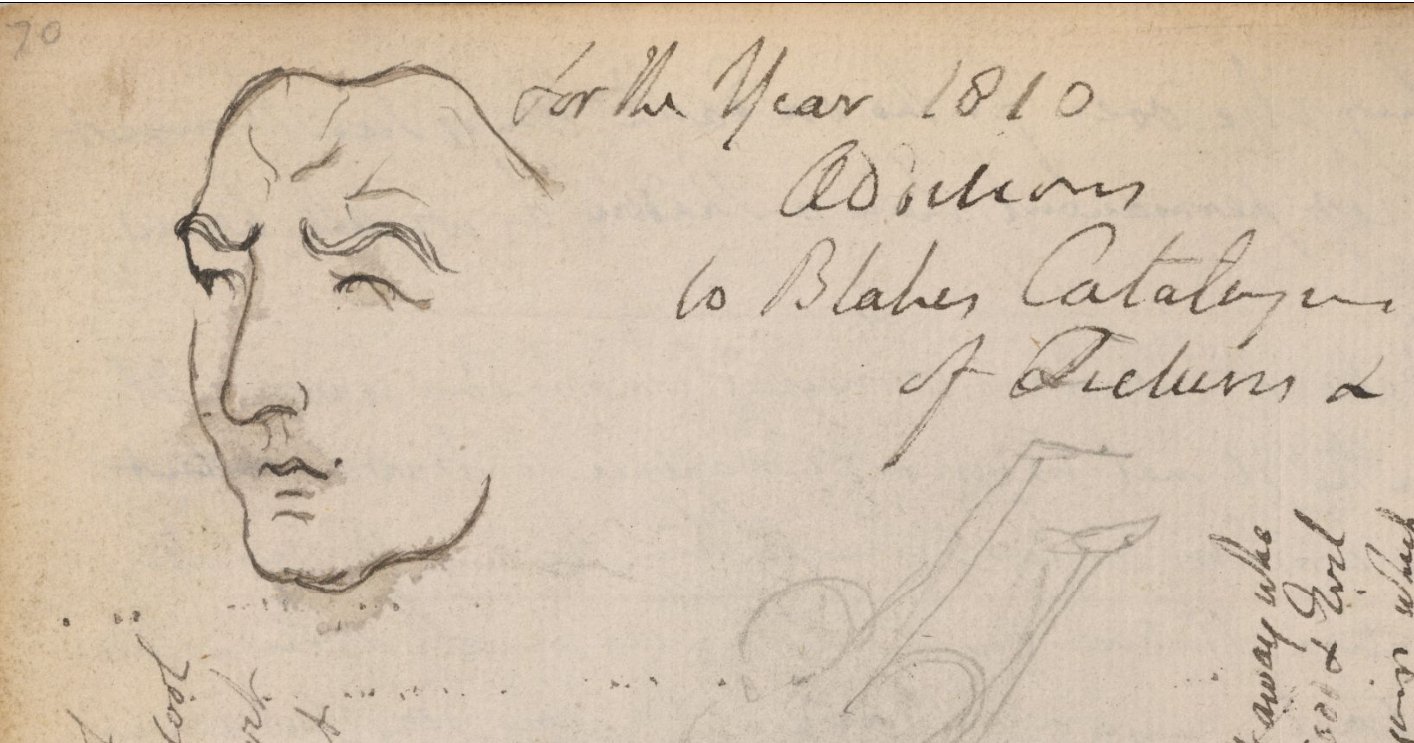 70
For the Year 1810
Additions
to Blakes Catalogue
of Pictures &
away who
Good & Evil
which
fool